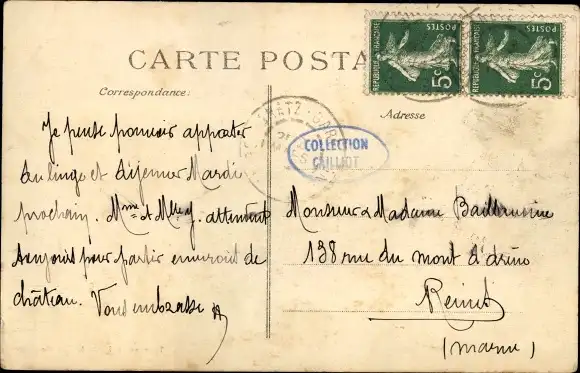 CARTE POSTA
REPUBLIQUE FRANÇAISE POSTES 5c
REPUBLIQUE FRANÇAISE POSTES 5c
Correspondance:
Adresse
COLLECTION
CAILLIOT
Je pense pouvoir apporter
du linge et déjeuner Mardi
prochain. Mme et Mlle J. attendent
toujours pour partir
château. Vous embrasse
Monsieur & Madame
138 rue du mont d'arène
Reims
(Marne)